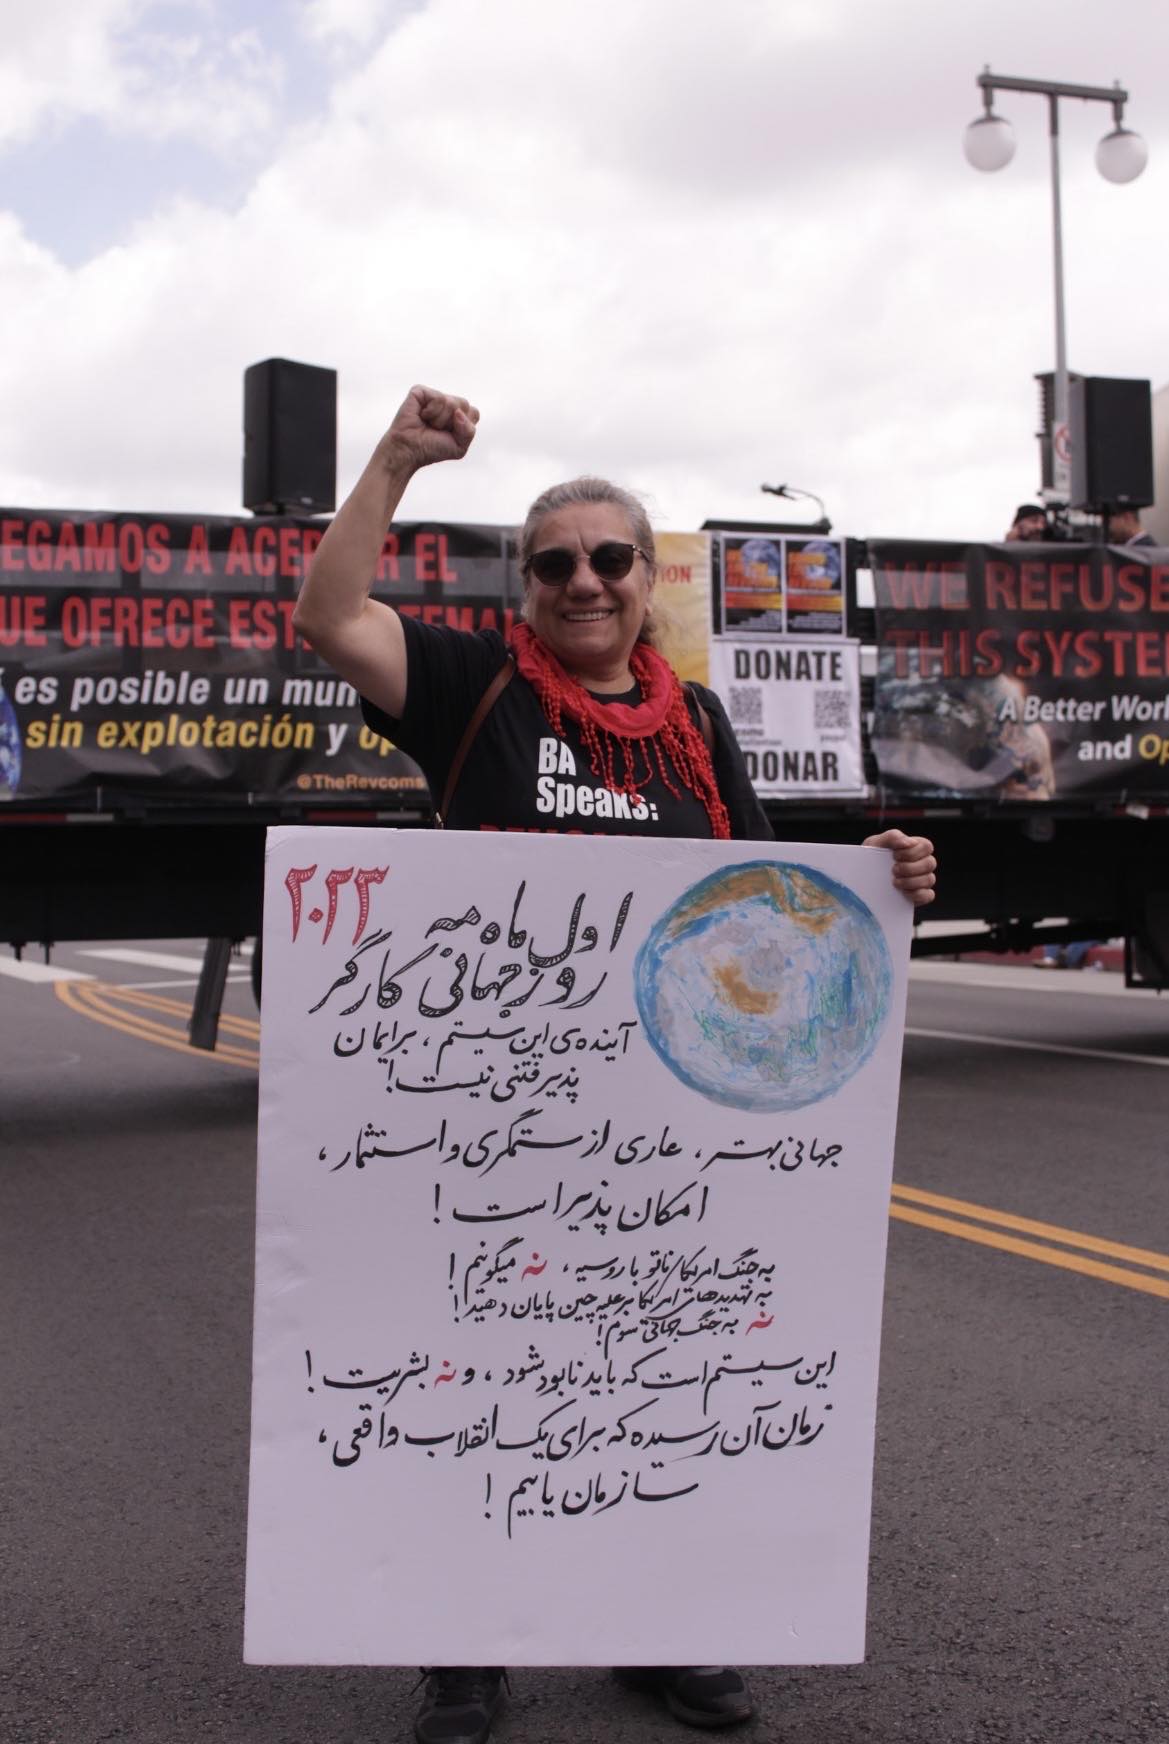 EGAMOS A ACEP R EL
UE OFRECE EST
es posible un mun
sin explotación y op
@TheRevcoms
ION
DONATE
DONAR
WE REFUSE
THIS SYSTE
A Better Wor
and Op
BA
Speaks:
۲۰۲۳
اول ماه مه
روز جهانی کارگر
آینده‌ی این سیستم، برایمان
پذیرفتنی نیست!
جهانی بهتر، عاری از ستمگری و استثمار،
امکان پذیر است!
به جنگ امریکا/ناتو با روسیه، نه میگوئیم!
به تهدیدهای امریکا برعلیه چین پایان دهید!
نه به جنگ جهانی سوم!
این سیستم است که باید نابود شود، و نه بشریت!
زمان آن رسیده که برای یک انقلاب واقعی،
سازمان یابیم!